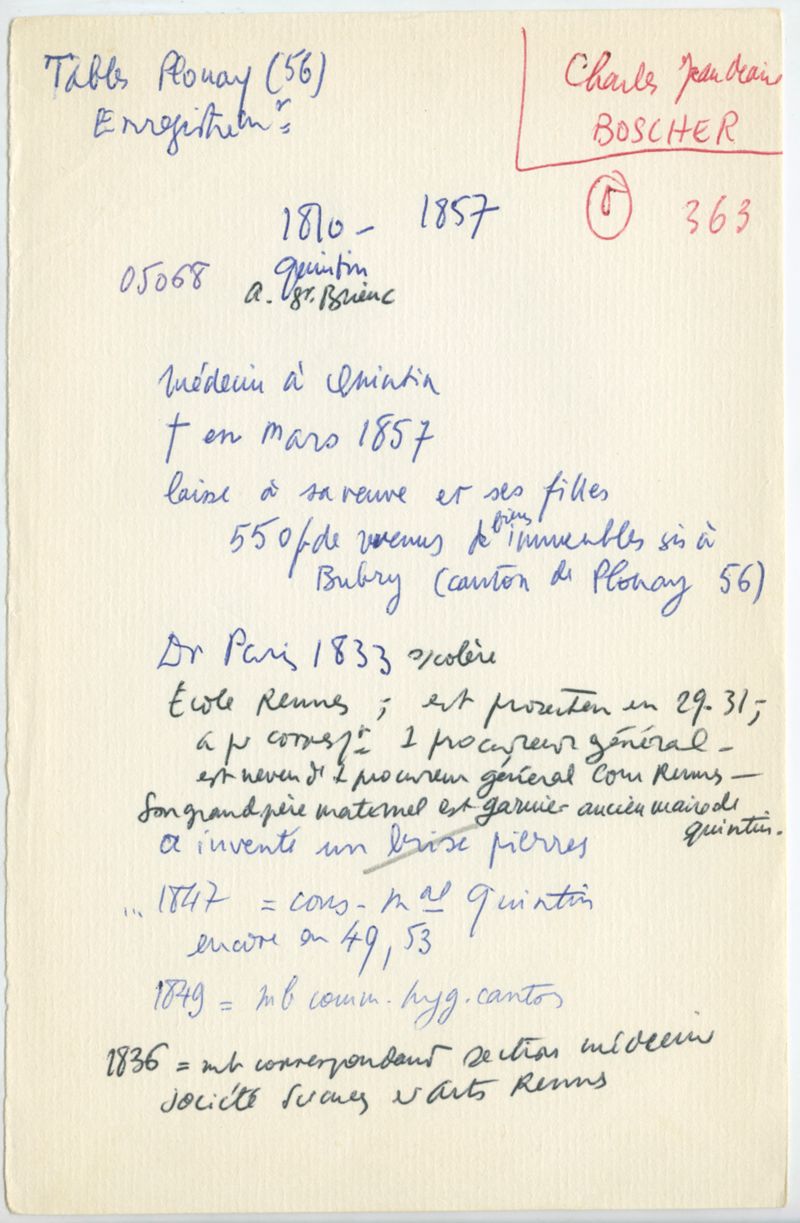 Tables Plouay (56)
Enregistremt
Charles Jean
BOSCHER
363
1810 - 1857
05068
Quintin
a. St. Brieuc
Médecin à Quintin
† en Mars 1857
laisse à sa veuve et ses filles
550 f de revenus de biens immeubles sis à
Bubry (canton de Plouay 56)
Dr Paris 1833 s/choléra
École Rennes ; est prosecteur en 29-31 ;
a pr correspt 1 procureur général -
est neveu d' 1 procureur général Cour Rennes -
Son grand père maternel est garnier ancien maire de
Quintin.
a inventé un brise pierres
.. 1847 = cons. mal Quintin
encore en 49, 53
1849 = mb comm. hyg. canton
1836 = mb correspondant section médecine
Société Sciences et Arts Rennes